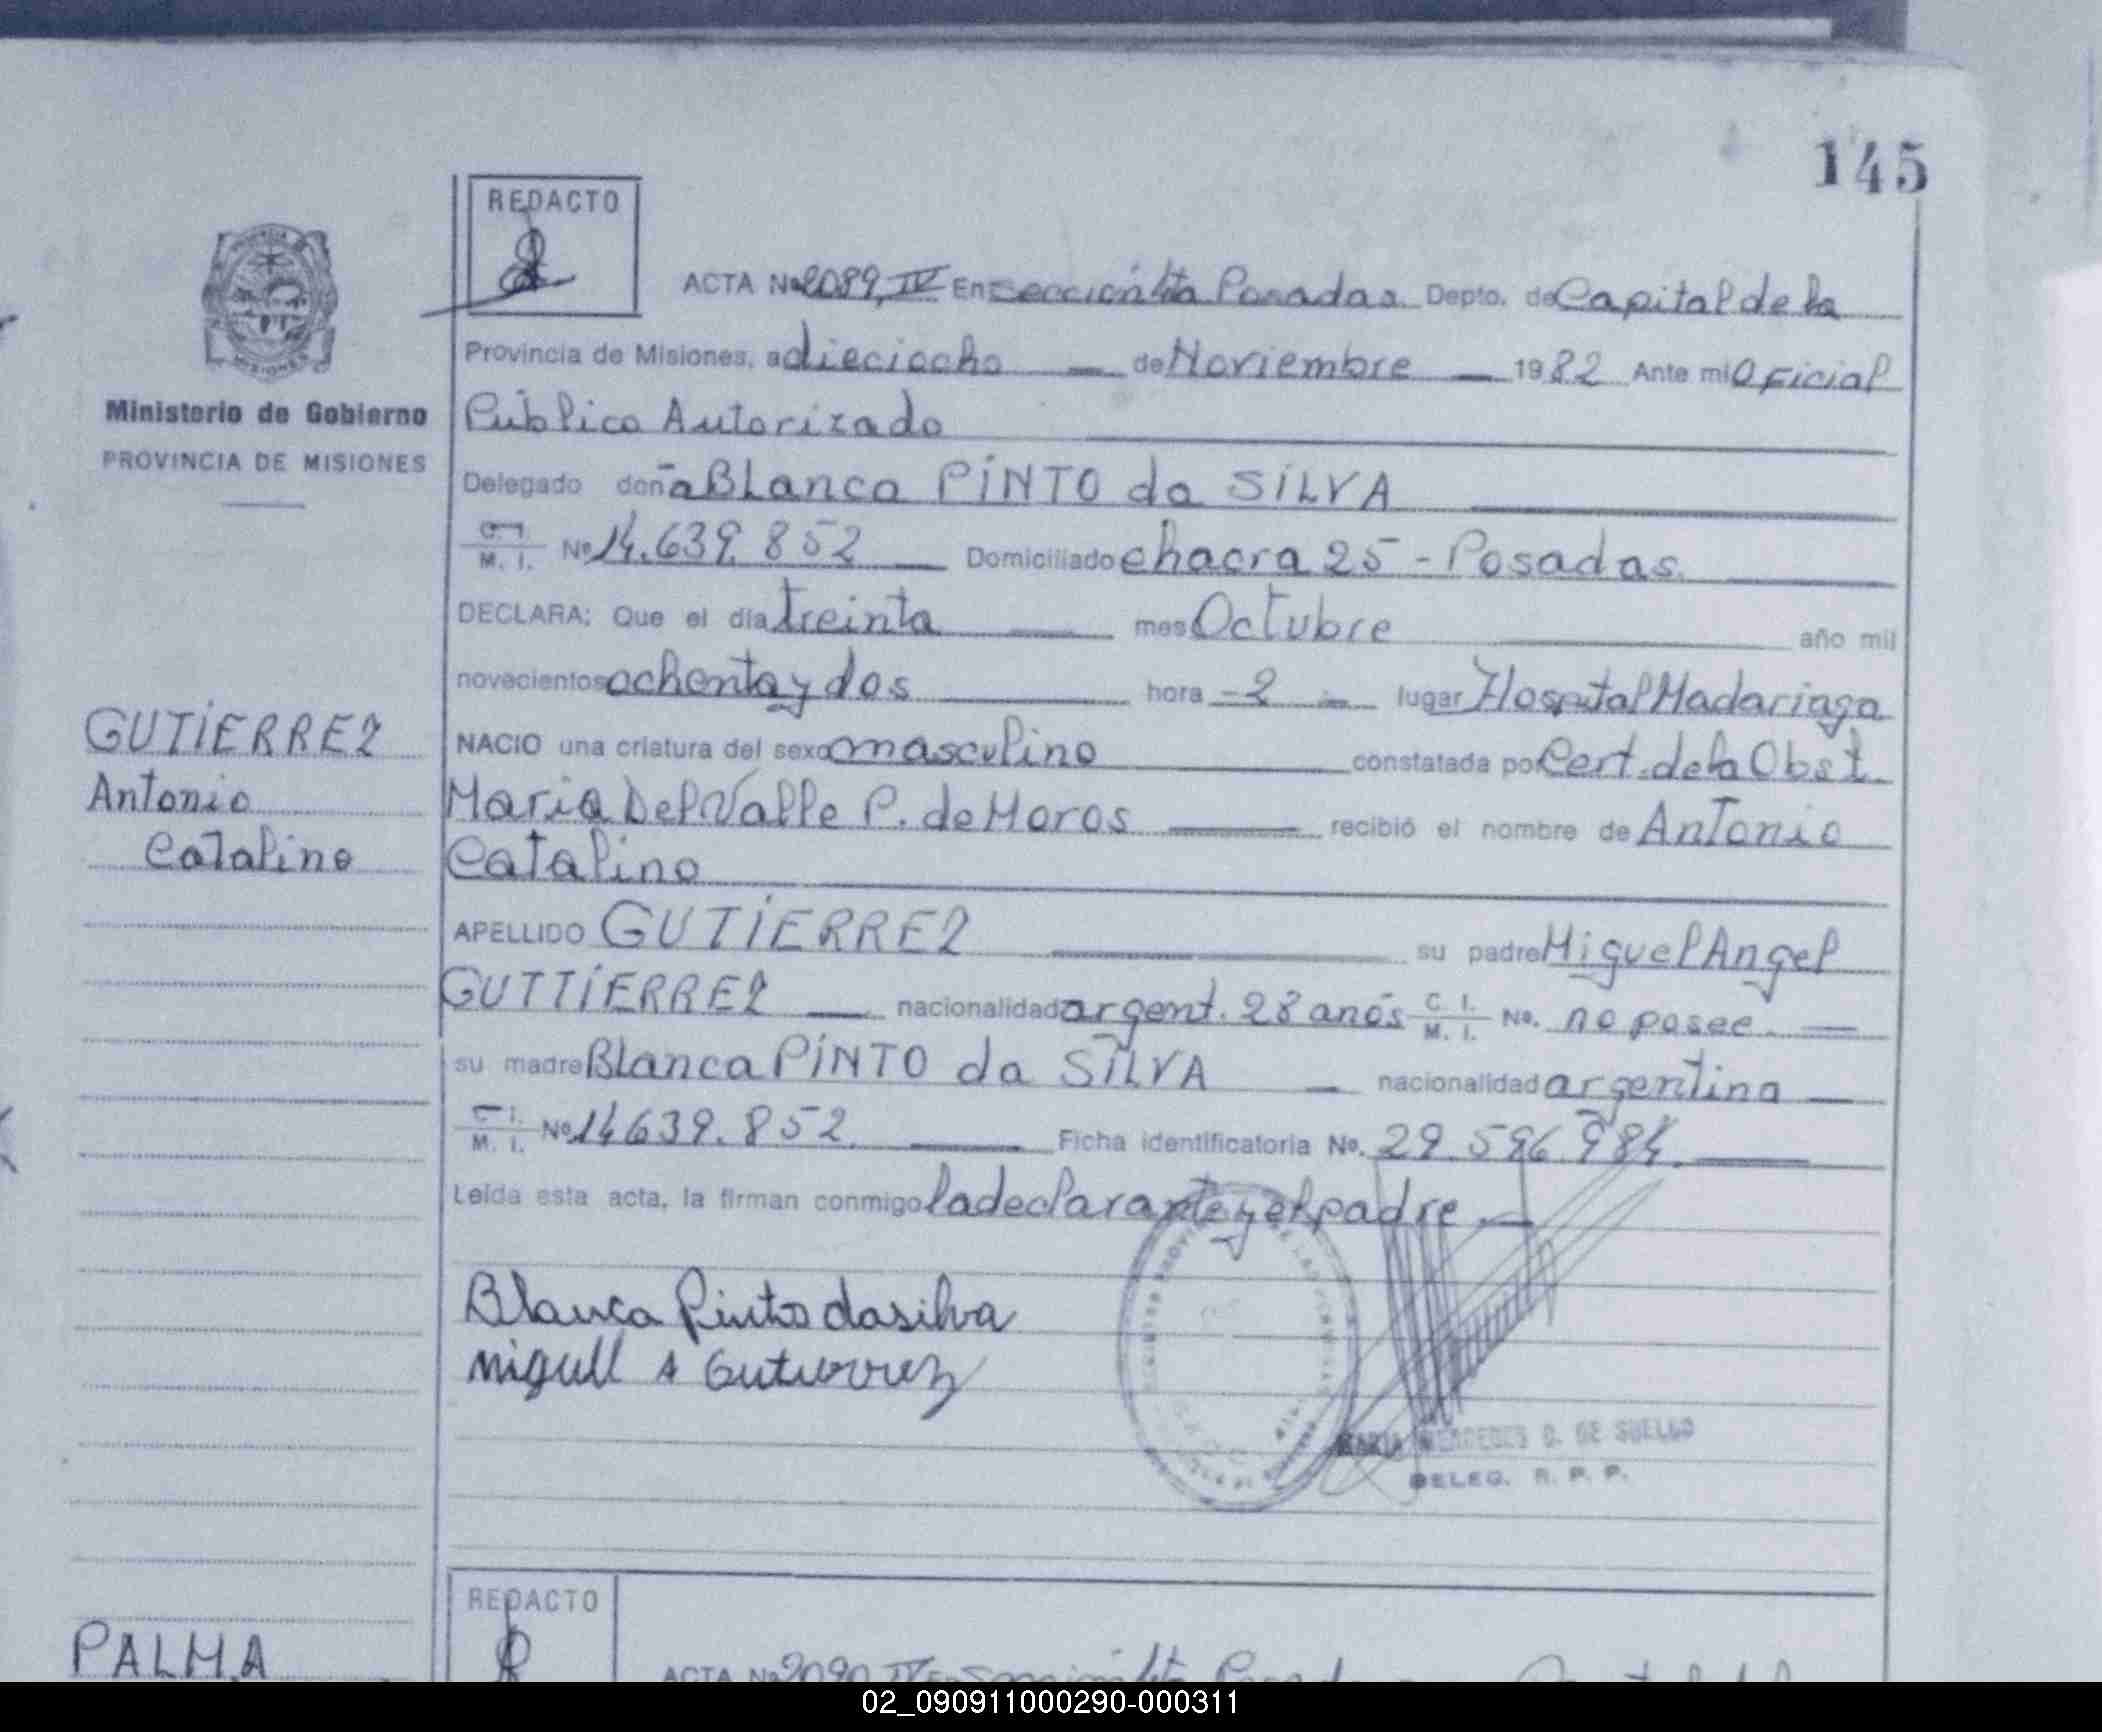 145
REDACTO
ACTA No 2089, IV En sección 4ta Posadas. Depto. de Capital de la
Provincia de Misiones, a dieciocho — de Noviembre — 1982 Ante mi Oficial
Ministerio de Gobierno
Público Autorizado
PROVINCIA DE MISIONES
Delegado doña Blanca PINTO da SILVA
C. I. M. I. No 14.639.852 — Domiciliado chacra 25 - Posadas.
DECLARA: Que el día treinta — mes Octubre año mil
novecientos ochenta y dos hora - 2 - lugar Hospital Madariaga
GUTIERREZ
NACIO una criatura del sexo masculino constatada por Cert. de la Obst.
Antonio
Maria Del Valle P. de Moros recibió el nombre de Antonio
Catalino
Catalino
APELLIDO GUTIERREZ su padre Miguel Angel
GUTTIERREZ — nacionalidad argent. 28 anós C. I. M. I. No. no posee. —
su madre Blanca PINTO da SILVA — nacionalidad argentina —
C. I. M. I. No 14639.852. — Ficha identificatoria No. 29.596.984. —
Leída esta acta, la firman conmigo la declarante y el padre. —
Blanca Pinto da silva
miguel A Gutierrez
MARIA MERCEDES D. DE SUELDO
DELEG. R. P. P.
REDACTO
PALMA
ACTA No 2090 IV En sección 4ta
02_090911000290-000311